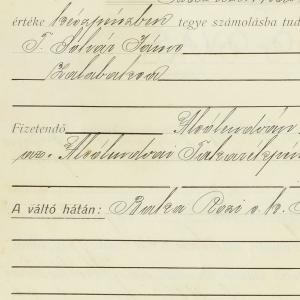 értéke készpénzben tegye számolásba tud
T. Sólyár János
Zalabaksa
Fizetendő Alsólendván
az. Alsólendvai Takarékpén
A váltó hátán: Baksa Rozi s. k.